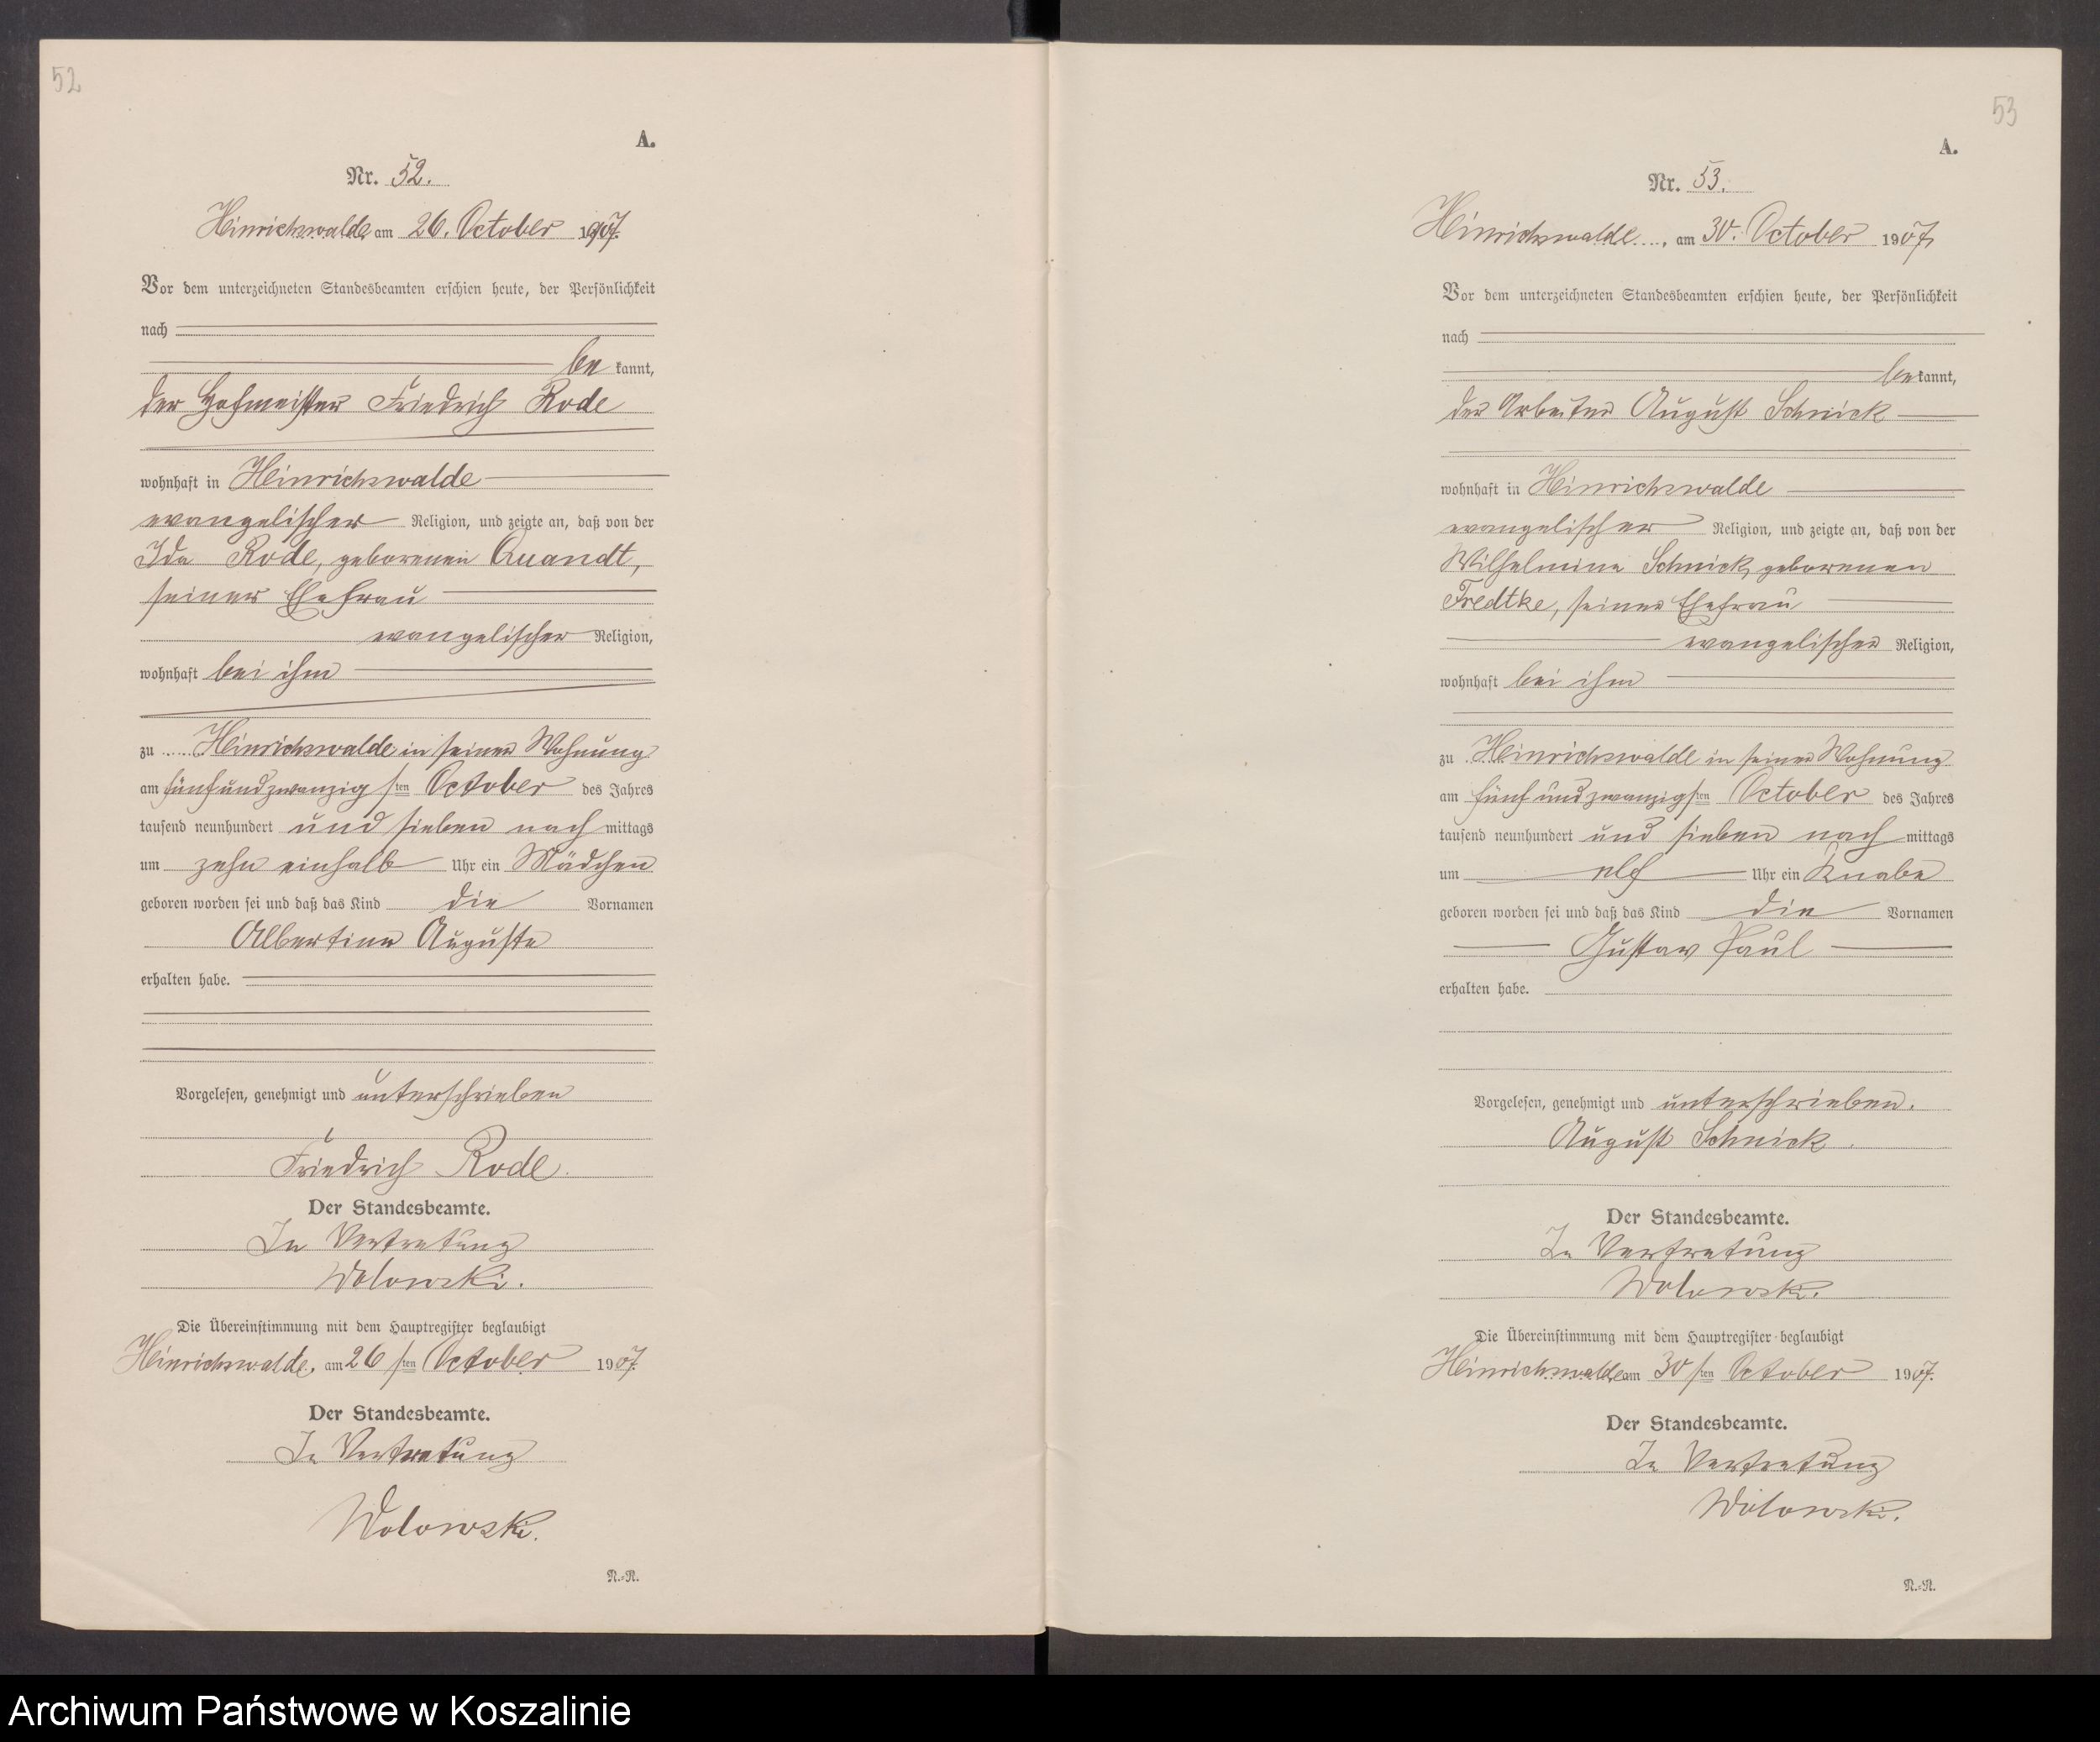 52
A.
Nr. 52.
Heinrichswalde am 26. October 1907.
Vor dem unterzeichneten Standesbeamten erschien heute, der Persönlichkeit
nach
be kannt,
der Hofmeister Friedrich Rode
wohnhaft in Heinrichswalde
evangelischer Religion, und zeigte an, daß von der
Ida Rode, geborenen Quandt,
seiner Ehefrau
evangelischer Religion,
wohnhaft bei ihm
zu Heinrichswalde in seiner Wohnung
am fünfundzwanzigsten October des Jahres
tausend neunhundert und sieben nach mittags
um zehn einhalb Uhr ein Mädchen
geboren worden sei und daß das Kind die Vornamen
Albertine Auguste
erhalten habe.
Vorgelesen, genehmigt und unterschrieben
Friedrich Rode.
Der Standesbeamte.
In Vertretung
Wolowski.
Die Übereinstimmung mit dem Hauptregister beglaubigt
Heinrichswalde, am 26sten October 1907.
Der Standesbeamte.
In Vertretung
Wolowski.
N.-R.
53
A.
Nr. 53.
Heinrichswalde, am 30. October 1907
Vor dem unterzeichneten Standesbeamten erschien heute, der Persönlichkeit
nach
be kannt,
der Arbeiter August Schnick
wohnhaft in Heinrichswalde
evangelischer Religion, und zeigte an, daß von der
Wilhelmine Schnick, geborenen
Fredtke, seiner Ehefrau
evangelischer Religion,
wohnhaft bei ihm
zu Heinrichswalde in seiner Wohnung
am fünfundzwanzigsten October des Jahres
tausend neunhundert und sieben nach mittags
um elf Uhr ein Knabe
geboren worden sei und daß das Kind die Vornamen
Gustav Paul
erhalten habe.
Vorgelesen, genehmigt und unterschrieben.
August Schnick.
Der Standesbeamte.
In Vertretung
Wolowski.
Die Übereinstimmung mit dem Hauptregister beglaubigt
Heinrichswalde am 30sten October 1907.
Der Standesbeamte.
In Vertretung
Wolowski.
N.-R.
Archiwum Państwowe w Koszalinie